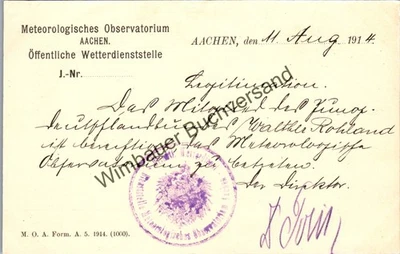 Meteorologisches Observatorium
AACHEN.
Öffentliche Wetterdienststelle
J.-Nr.
AACHEN, den 11 Aug 1914.
Legitimation.
Das Mitglied des Jung-
deutschlandbundes Walther Rohland
ist berechtigt das Meteorologische
Observatorium zu betreten.
Der Direktor.
M. O. A. Form. A. 5. 1914. (1000).
Wimbauer Buchversand